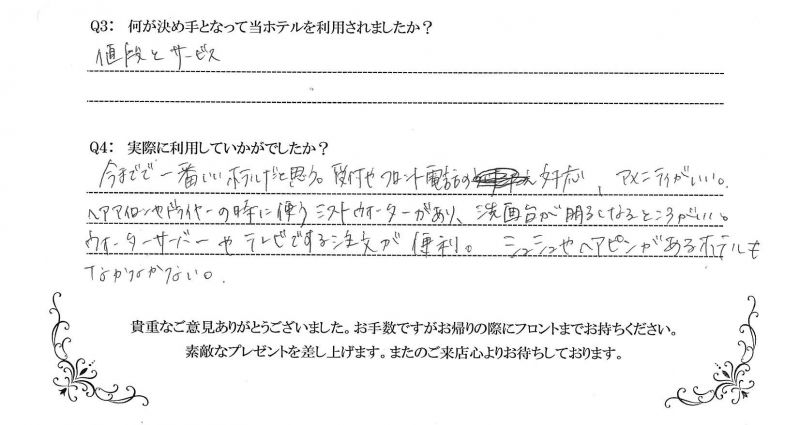 Q3: 何が決め手となって当ホテルを利用されましたか？
値段とサービス
Q4: 実際に利用していかがでしたか？
今までで一番いいホテルだと思う。受付やフロント電話の対応、アメニティがいい。
ヘアアイロンやドライヤーの時に使うミストウォーターがあり、洗面台が明るくなるところがいい。
ウォーターサーバーやテレビでする注文が便利。シュシュやヘアピンがあるホテルも
なかなかない。
貴重なご意見ありがとうございました。お手数ですがお帰りの際にフロントまでお持ちください。
素敵なプレゼントを差し上げます。またのご来店心よりお待ちしております。